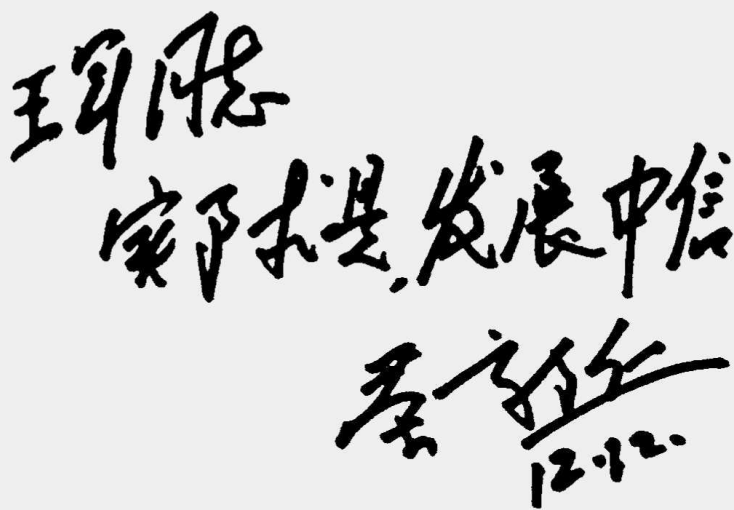 王军同志
实事求是,发展中信
荣毅仁
12.12.